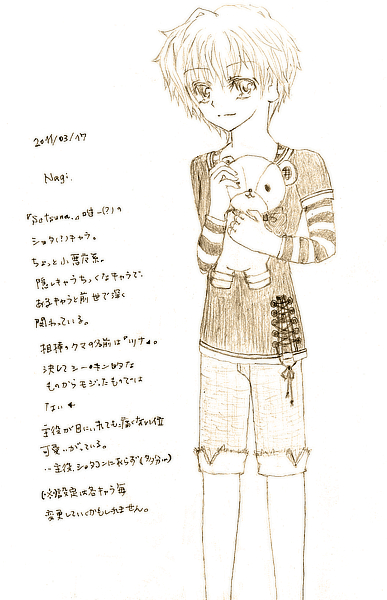 2011/03/17
Nagi.
『Setsuna.』唯一(?)の
ショタ(?)キャラ。
ちょっと小悪魔系。
隠しキャラちっくなキャラで、
あるキャラと前世で深く
関わっている。
相棒のクマの名前は"ツナ"。
決してシーチキン的な
ものからモジったものでは
ない←
主役が目にいれても痛くない位
可愛いがっている。
…主役、ショタコンにあらず(多分…)
(※設定は各キャラ毎
変更していくかもしれません。